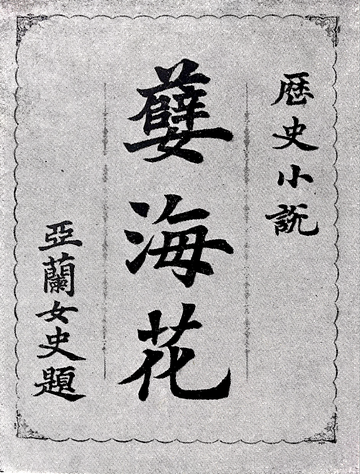 歴史小說
孽海花
亞蘭女史題